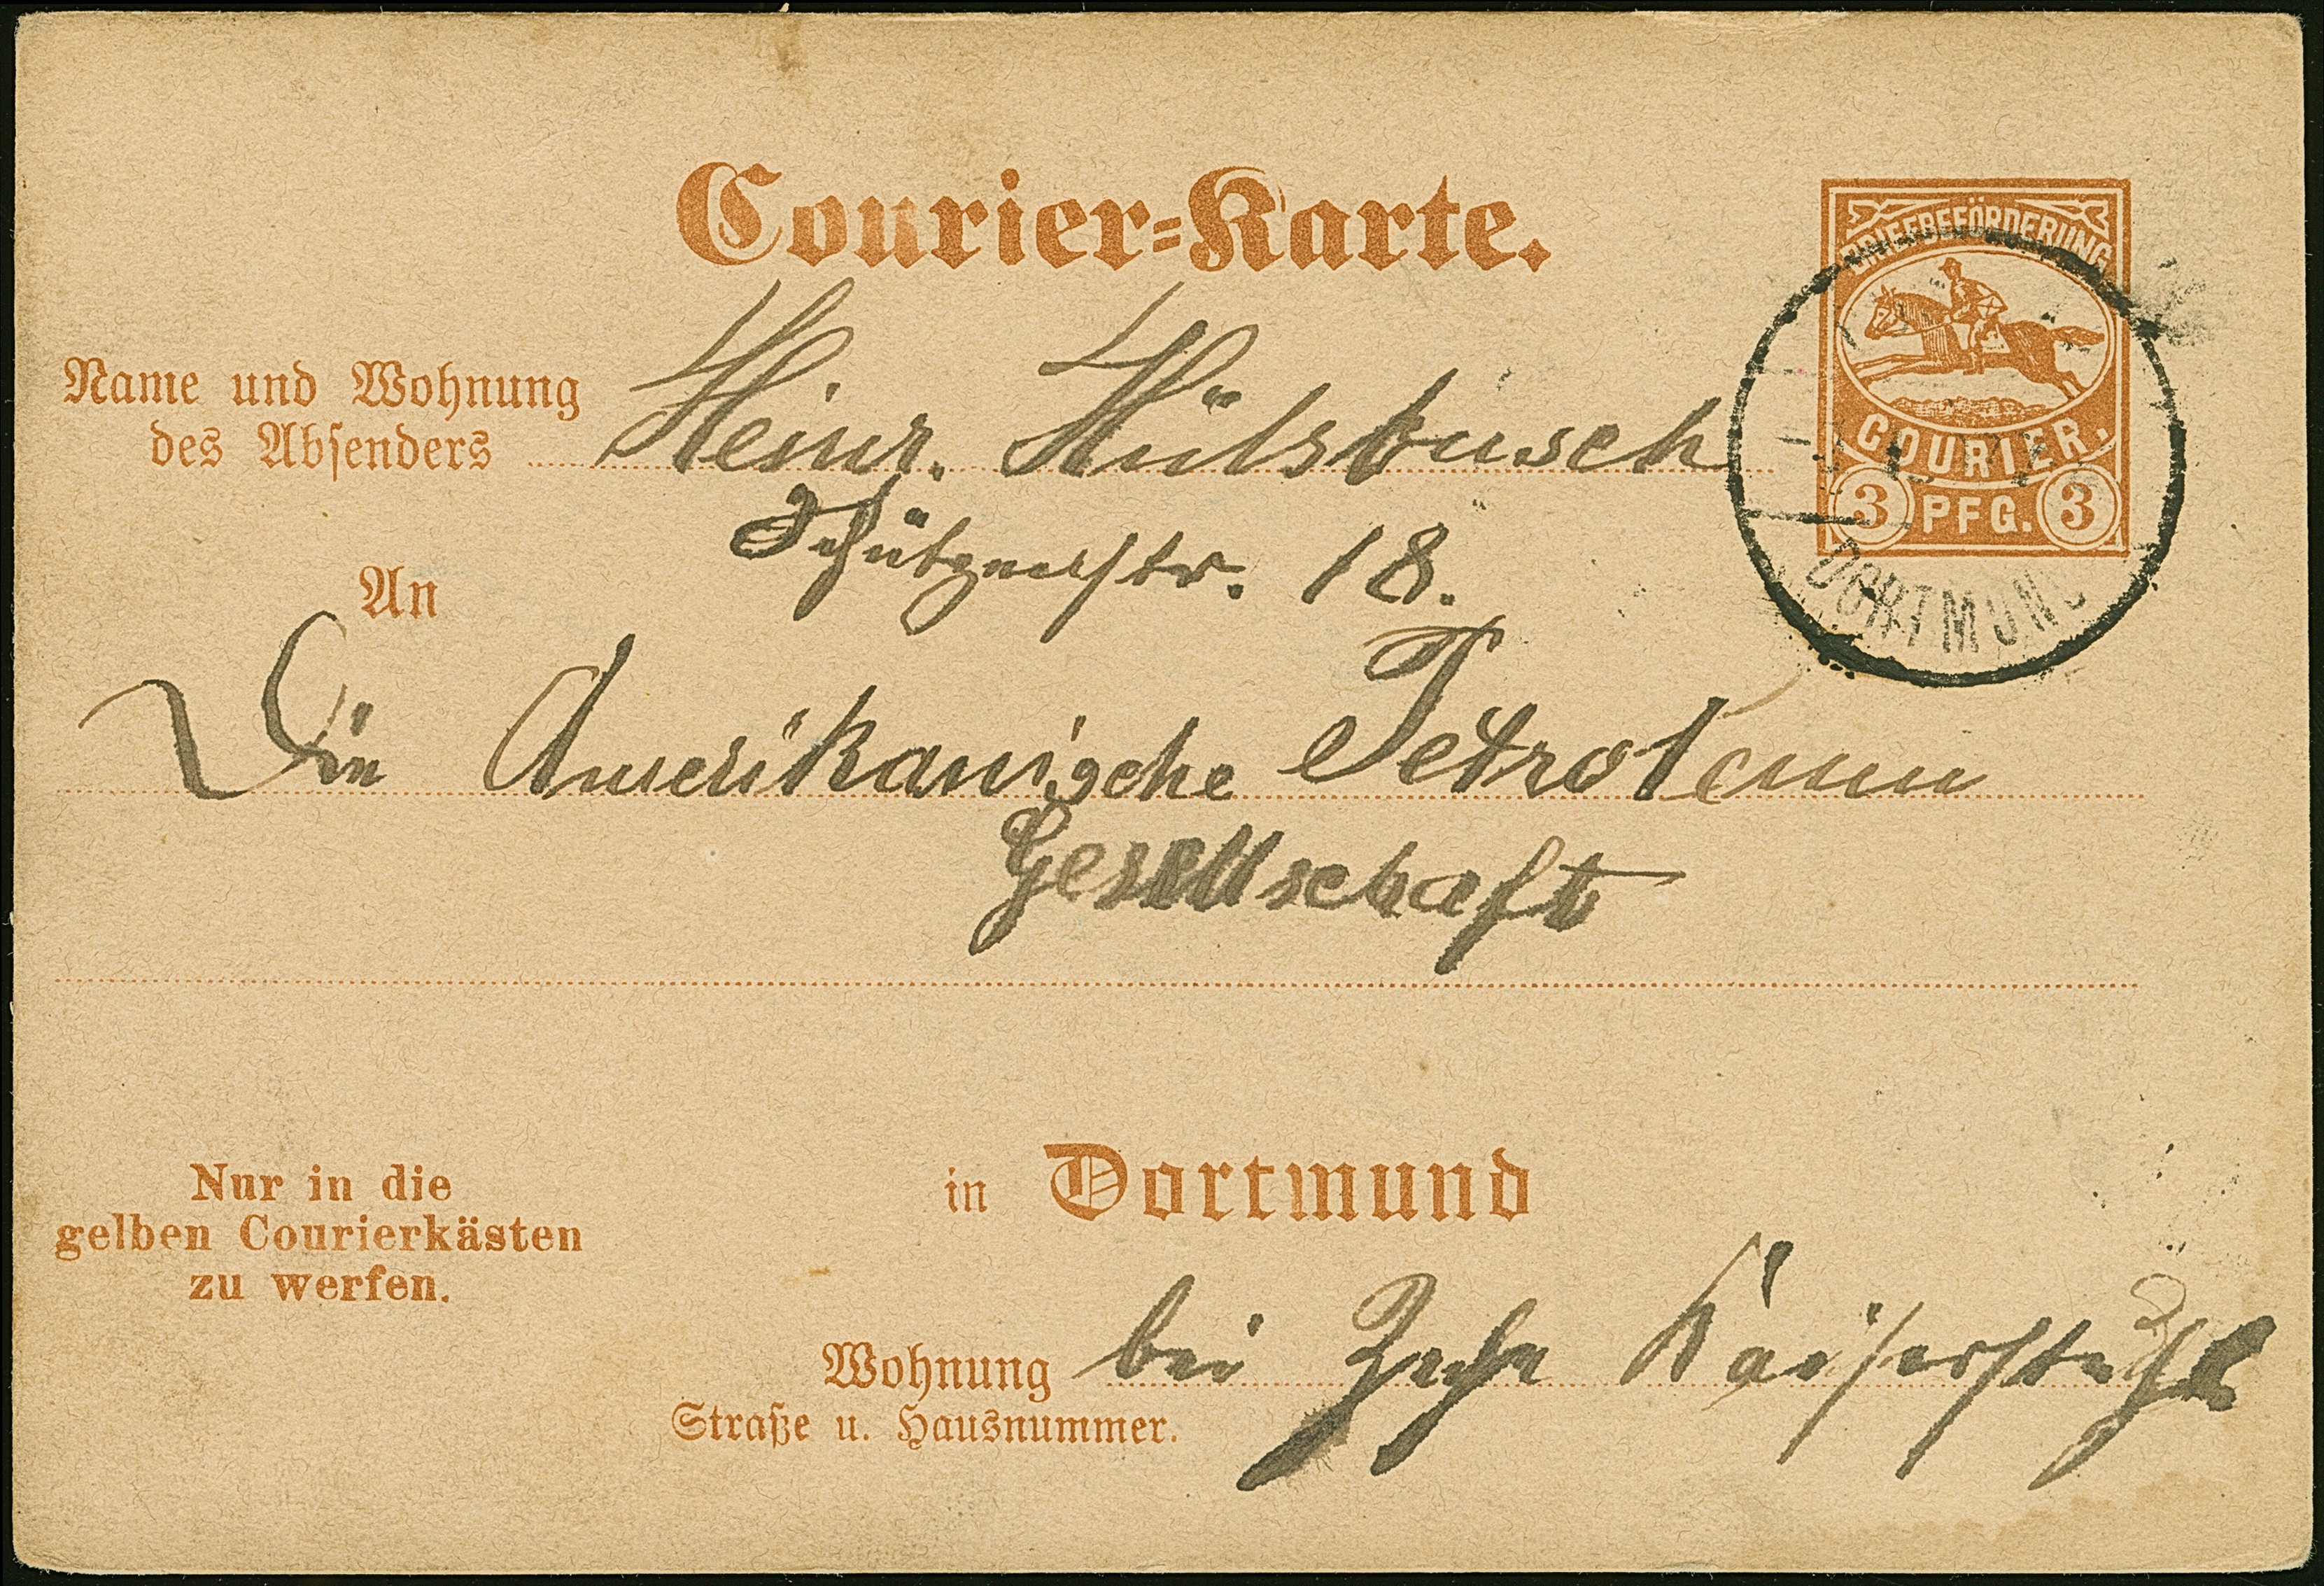 Courier-Karte.
BRIEFBEFÖRDERUNG
COURIER.
3 PFG. 3
DORTMUND
Name und Wohnung
des Absenders Heinr. Hülsbusch
Schützenstr. 18.
An
Die Amerikanische Petroleum
Gesellschaft
Nur in die
gelben Courierkästen
zu werfen.
in Dortmund
Wohnung bei Zeche Kaiserstuhl
Straße u. Hausnummer.